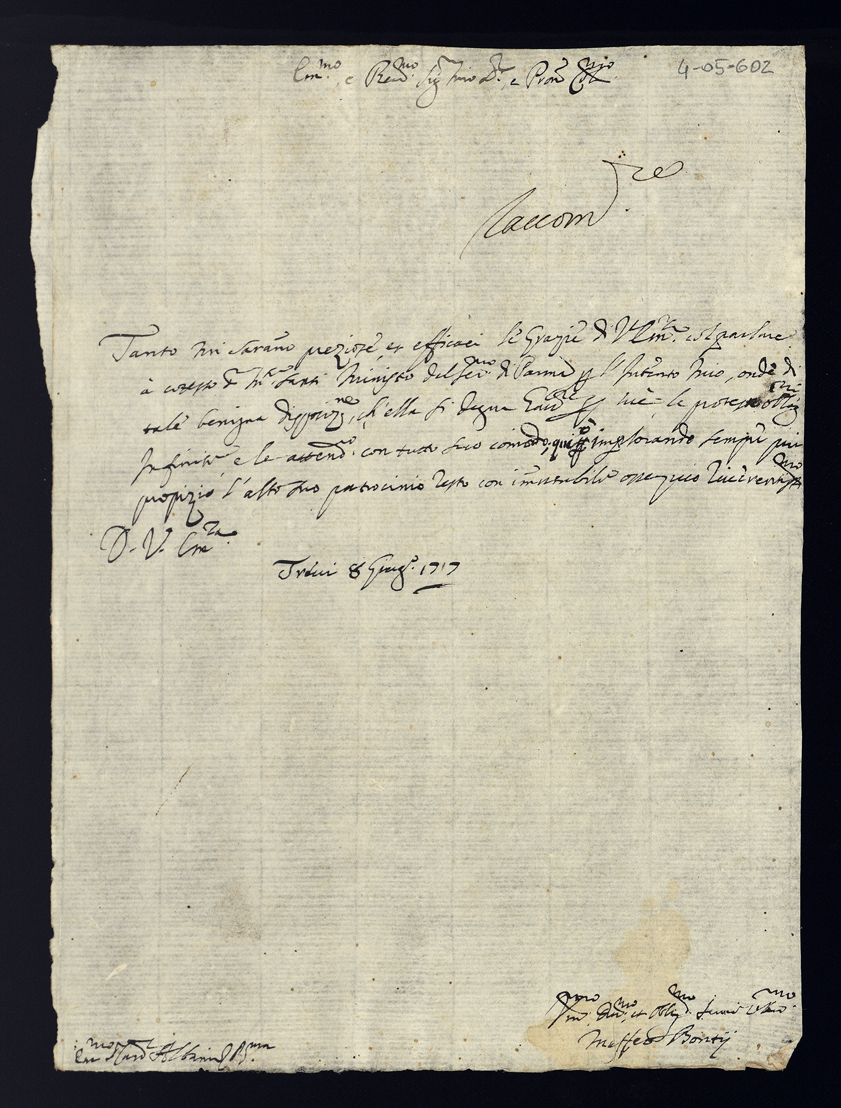 Em.mo e Rev.mo Sig.r mio S.r e Pron Col.mo
4-05-602
Raccom
Tanto mi sarano preziose et efficaci le Grazie di V. Em.za col parlare
à cotesto Santi Ministro del Ser.mo di Parma p l'Intento mio, onde di
tale benigna disposiz.ne, ch'ella si degna p me le protesto oblig.ni
Infinite e le attendo con tutto suo comodo, implorando sempre più
propizio l'alto suo patrocinio resto con immutabile ossequio
D. V. Em.za
Trevi 8 Giug.o 1717
et oblig.mo
Maffeo Bontij
Em.mo Card. Albani